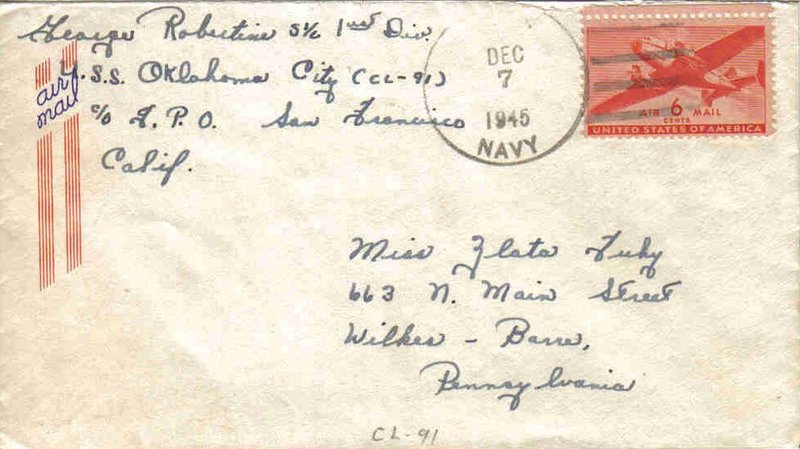 George Robertine S1/c 1st Div.
U.S.S. Oklahoma City (CL-91)
c/o F.P.O. San Francisco
Calif.
air
mail
DEC
7
1945
NAVY
AIR 6 MAIL
CENTS
UNITED STATES OF AMERICA
Miss Zlata Fuhy
663 N. Main Street
Wilkes - Barre,
Pennsylvania
CL-91